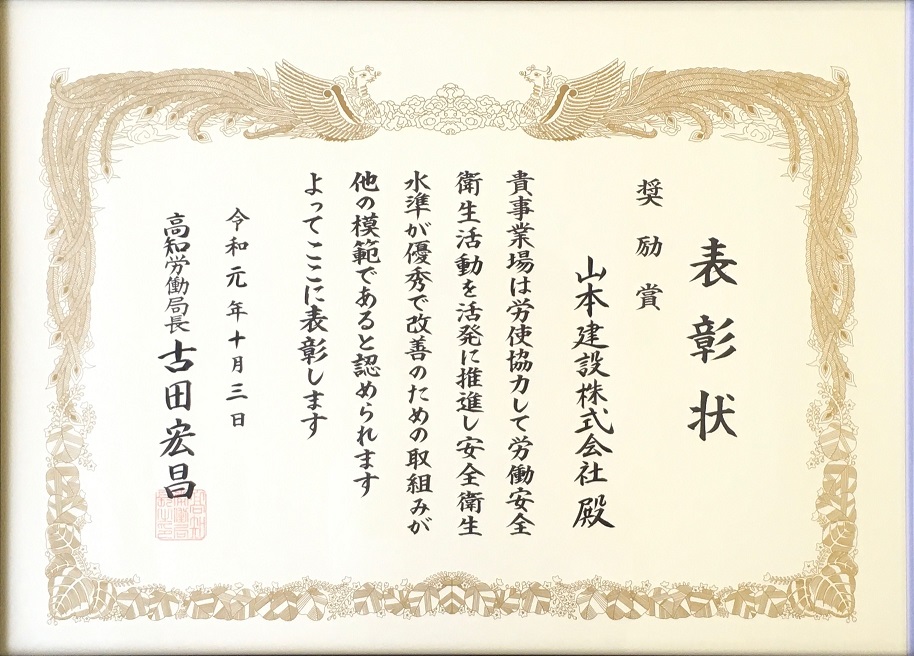 表彰状
奨励賞
山本建設株式会社 殿
貴事業場は労使協力して労働安全
衛生活動を活発に推進し安全衛生
水準が優秀で改善のための取組みが
他の模範であると認められます
よってここに表彰します
令和元年十月三日
高知労働局長 古田宏昌